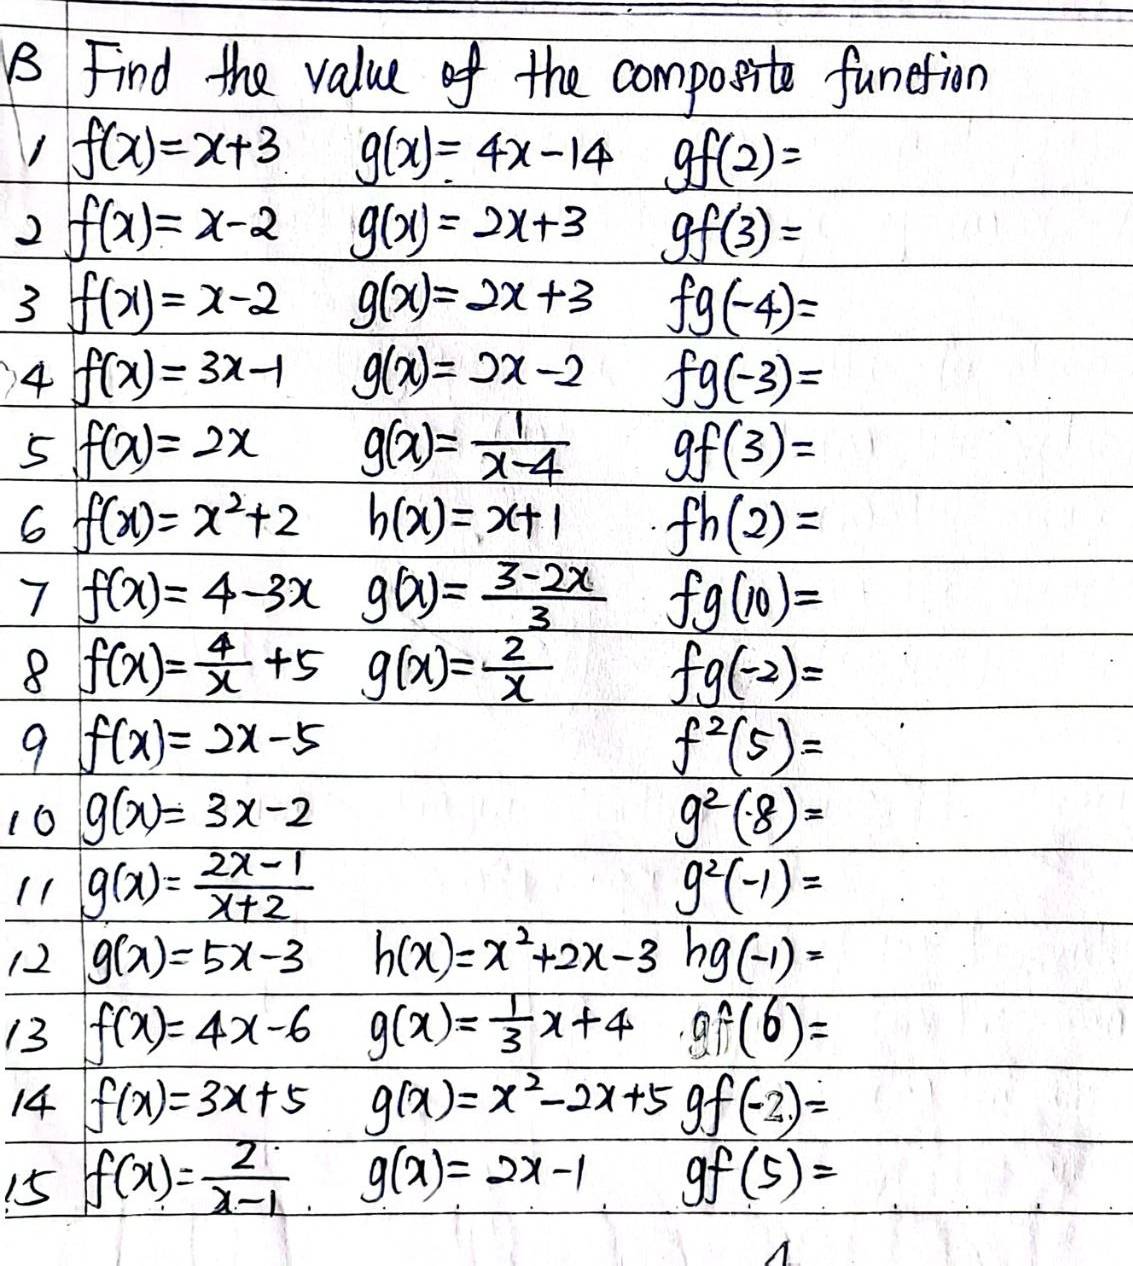 B Find the value of the composite function
1 f(x)=x+3 g(x)=4x-14 gf(2)=
2 f(x)=x-2 g(x)=2x+3 gf(3)=
3 f(x)=x-2 g(x)=2x+3 fg(-4)=
4 f(x)=3x-1 g(x)=2x-2 fg(-3)=
5 f(x)=2x g(x)=1/(x-4) gf(3)=
6 f(x)=x²+2 h(x)=x+1 fh(2)=
7 f(x)=4-3x g(x)=(3-2x)/3 fg(10)=
8 f(x)=4/x+5 g(x)=2/x fg(-2)=
9 f(x)=2x-5 f²(5)=
10 g(x)=3x-2 g²(-8)=
11 g(x)=(2x-1)/(x+2) g²(-1)=
12 g(x)=5x-3 h(x)=x²+2x-3 hg(-1)=
13 f(x)=4x-6 g(x)=1/3x+4 gf(6)=
14 f(x)=3x+5 g(x)=x²-2x+5 gf(-2)=
15 f(x)=2/(x-1) g(x)=2x-1 gf(5)=